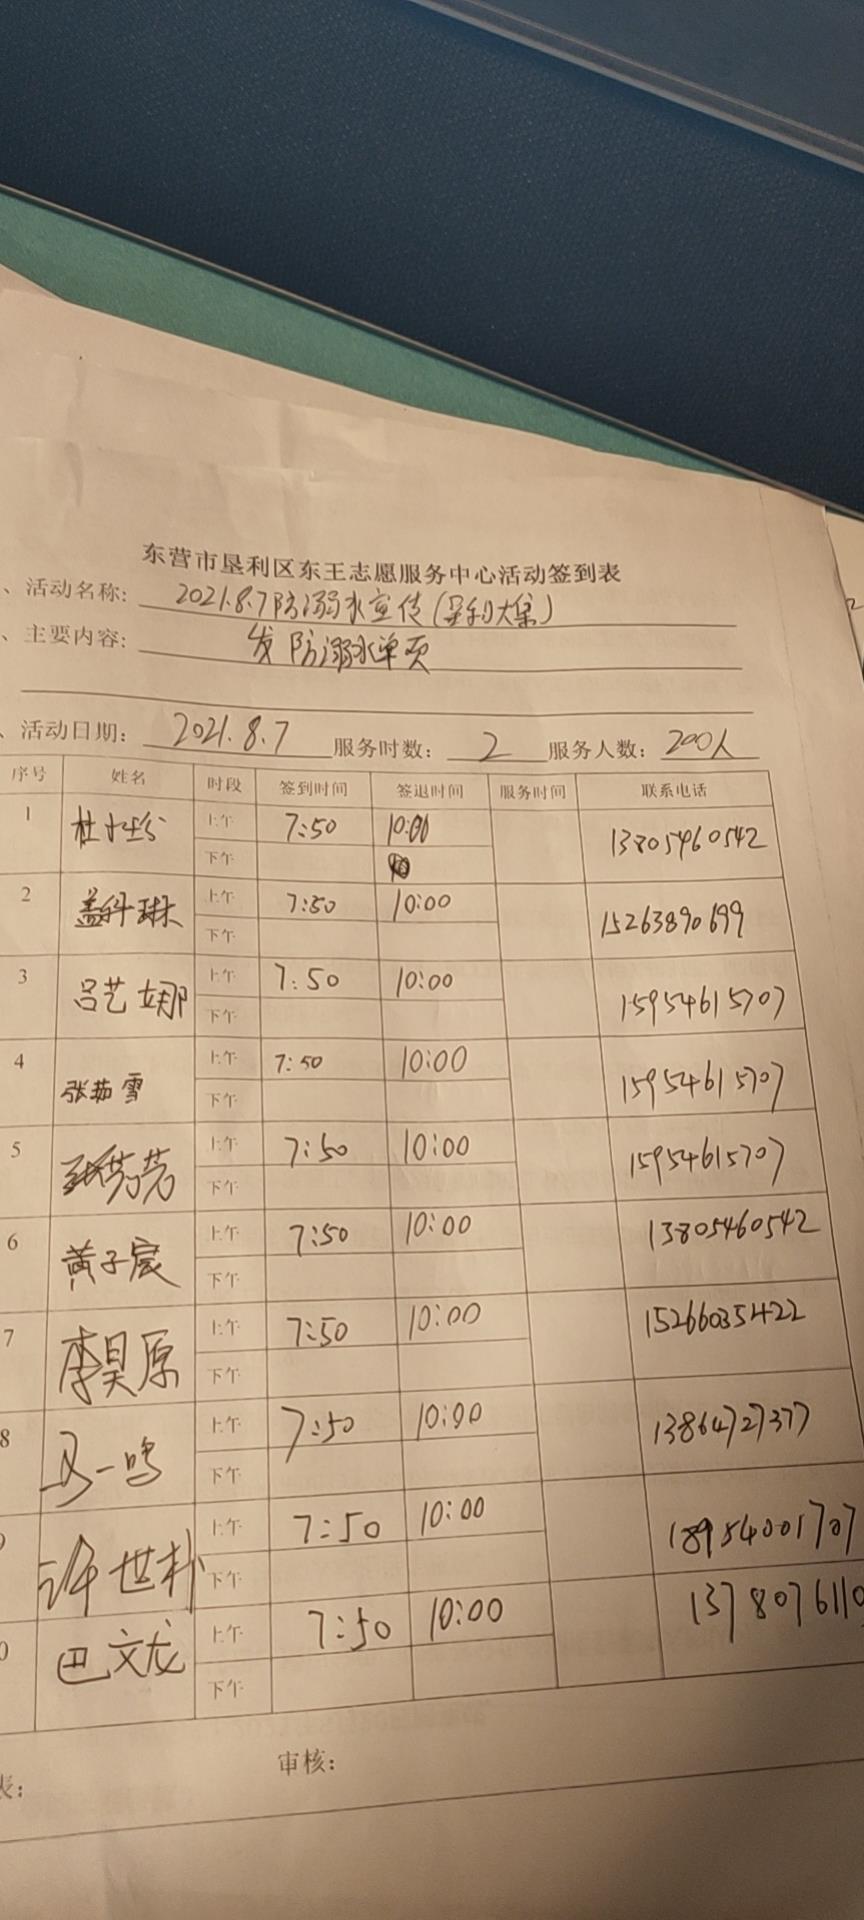 东营市垦利区东王志愿服务中心活动签到表
、活动名称: 2021.8.7防溺水宣传(垦利大集)
、主要内容: 发防溺水单页
、活动日期: 2021.8.7 服务时数: 2 服务人数: 200人
序号 姓名 时段 签到时间 签退时间 服务时间 联系电话
1 杜 上午 7:50 10:00 13805460542
下午
2 盖科琳 上午 7:50 10:00 15263890699
下午
3 吕艺娜 上午 7:50 10:00 15954615707
下午
4 张茹雪 上午 7:50 10:00 15954615707
下午
5 张芳芳 上午 7:50 10:00 15954615707
下午
6 黄子宸 上午 7:50 10:00 13805460542
下午
7 李昊原 上午 7:50 10:00 15266035422
下午
8 马一鸣 上午 7:50 10:00 13864727377
下午
许世朴 上午 7:50 10:00 18954001707
下午
0 巴文龙 上午 7:50 10:00 1378076110
下午
表: 审核: